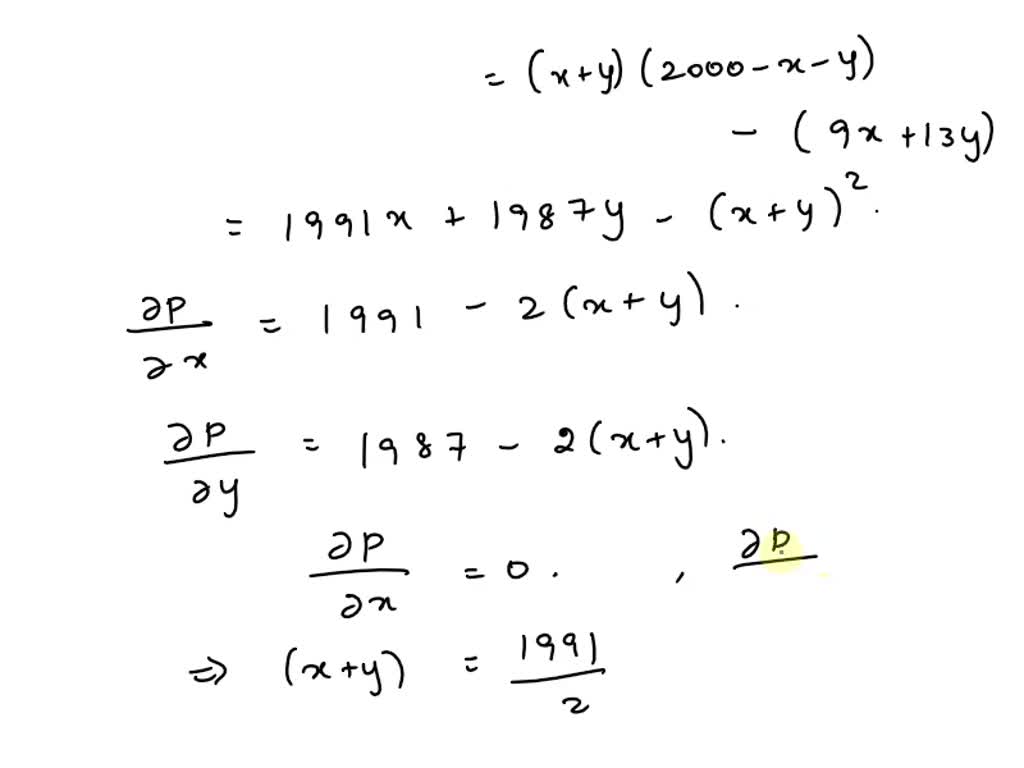 = (x+y) (2000-x-y)
- (9x+13y)
= 1991x + 1987y - (x+y)².
∂P/∂x = 1991 - 2(x+y).
∂P/∂y = 1987 - 2(x+y).
∂P/∂x = 0. , ∂P
⇒ (x+y) = 1991/2